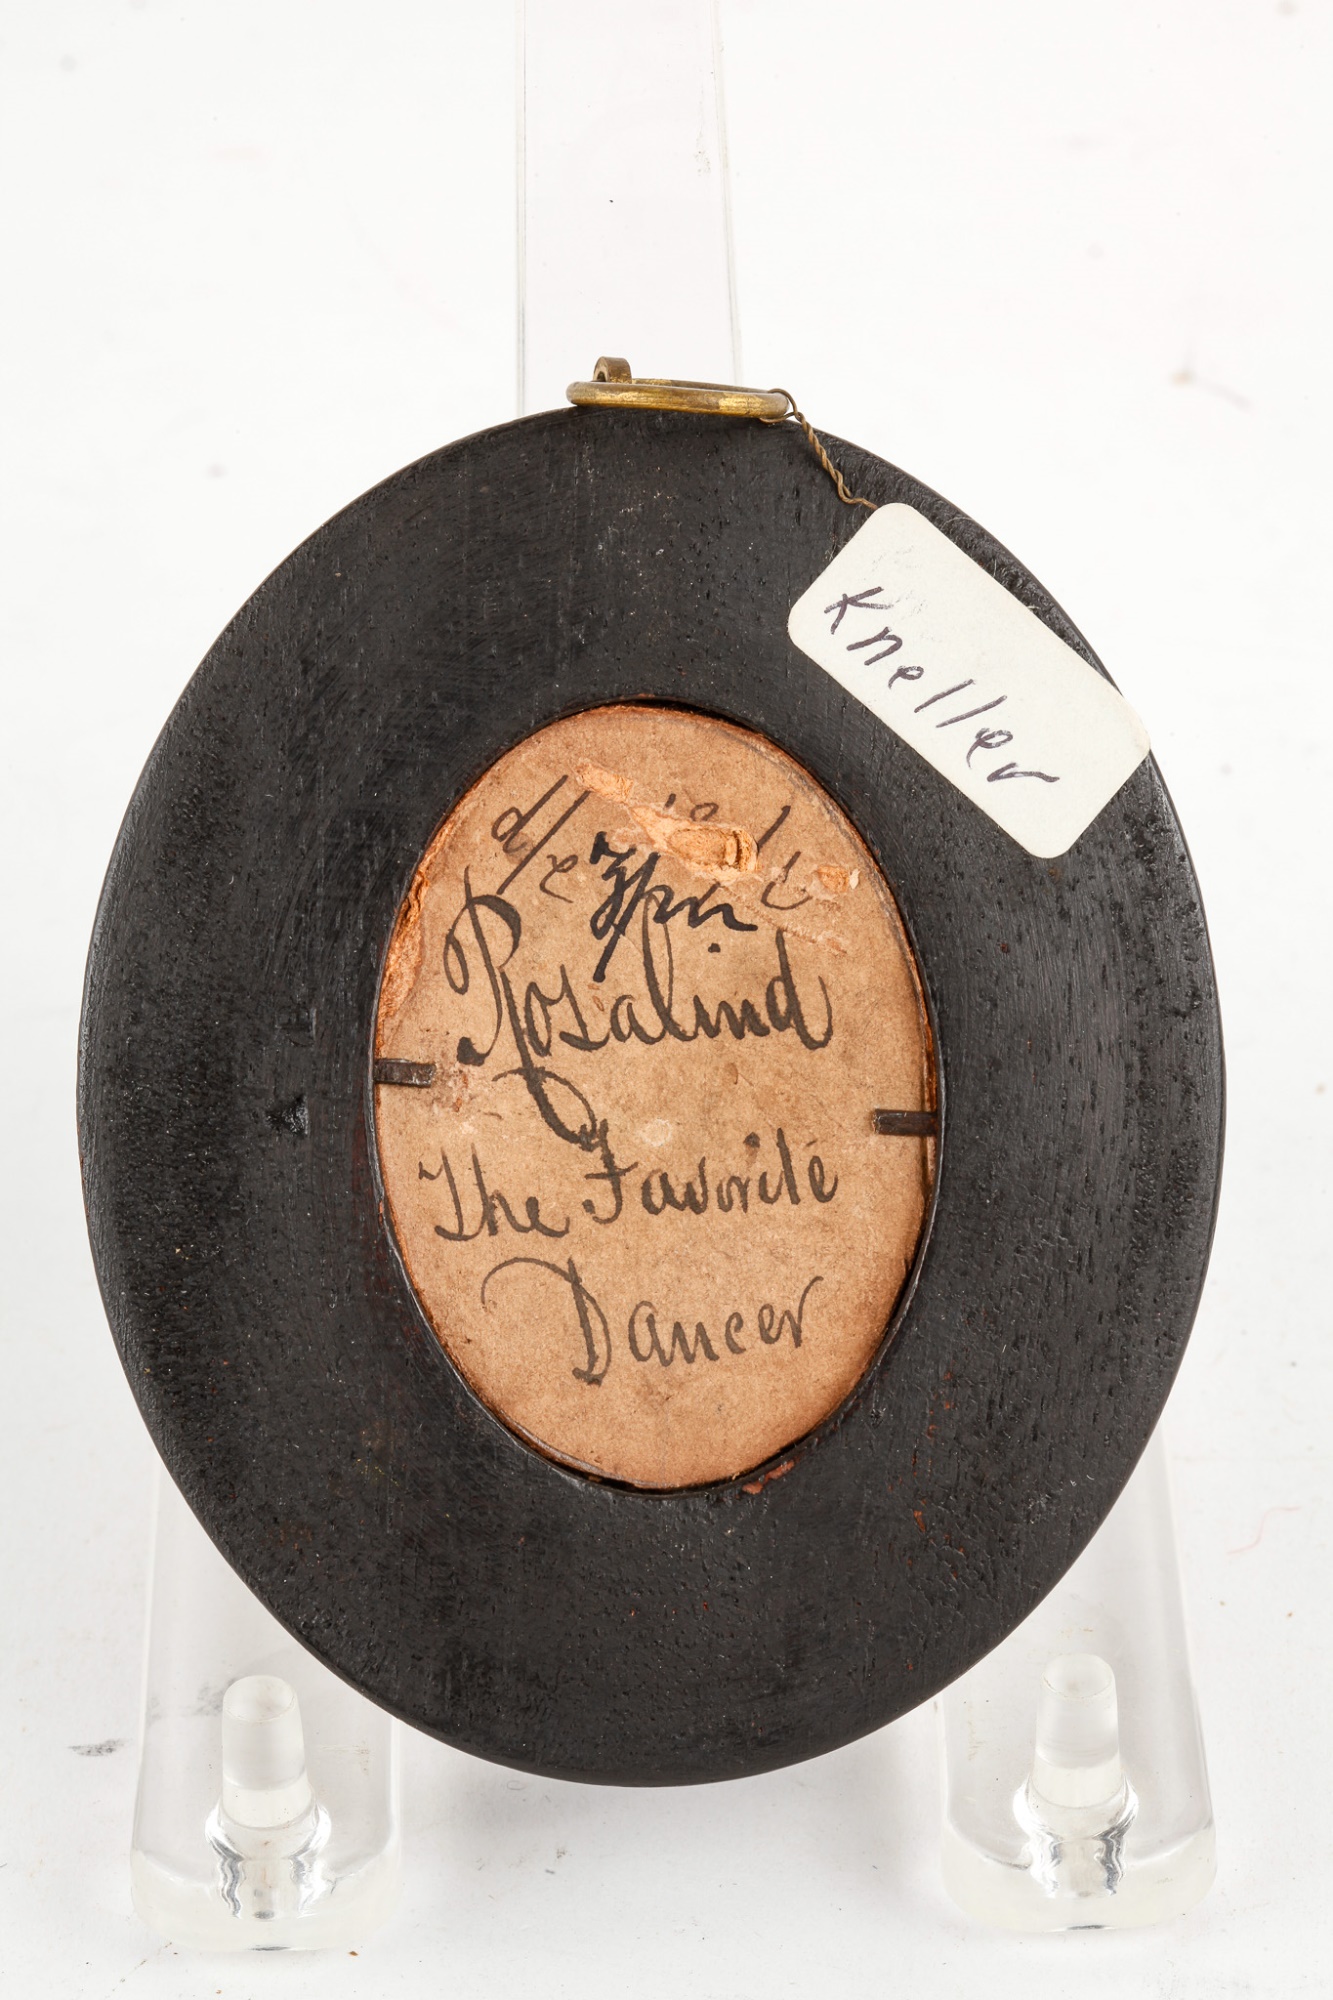 Kneller
Rosalind
The Favorite
Dancer